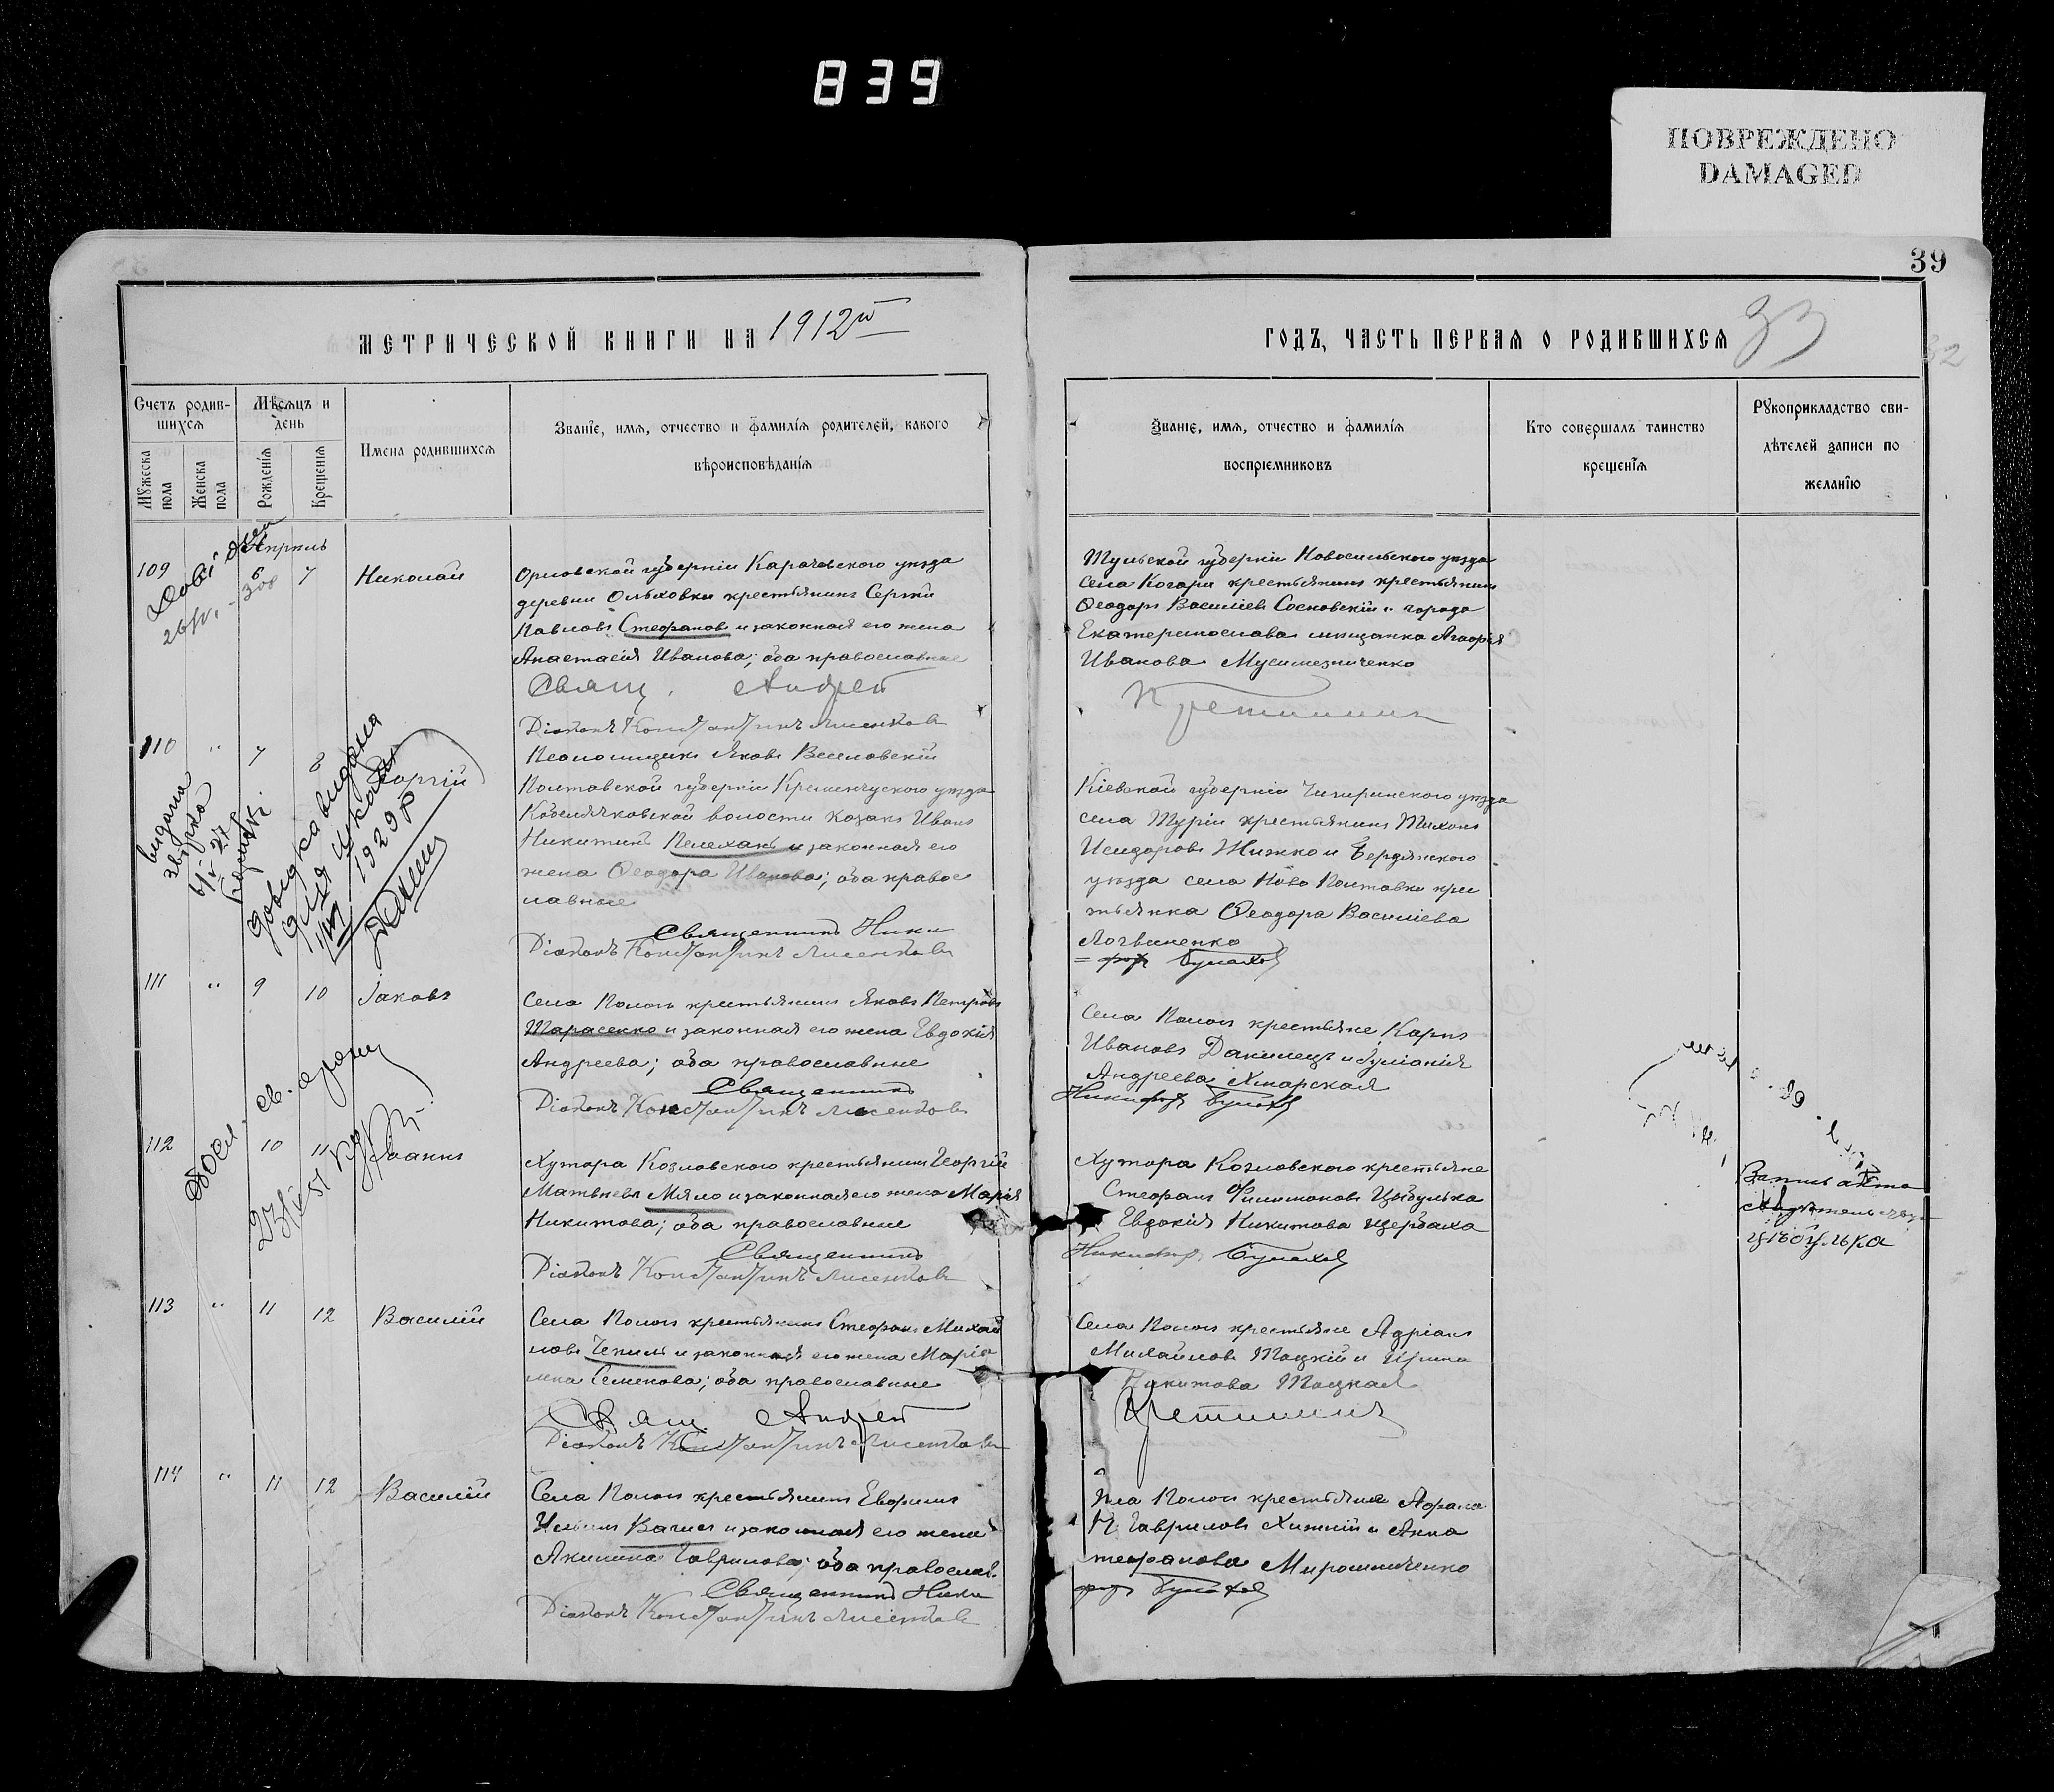 839
ПОВРЕЖДЕНО
DAMAGED
39
МЕТРИЧЕСКОЙ КНИГИ НА 1912й
ГОДЪ, ЧАСТЬ ПЕРВАЯ О РОДИВШИХСЯ
33
32
Счетъ родив-
шихся
Мужеска пола
Женска пола
Мѣсяцъ и
день
Рожденія
Крещенія
Имена родившихся
Званіе, имя, отчество и фамилія родителей, какого
вѣроисповѣданія
Званіе, имя, отчество и фамилія
воспріемниковъ
Кто совершалъ таинство
крещенія
Рукоприкладство сви-
дѣтелей записи по
желанію
Апрель
109 6 7 Николай
Орловской губерніи Карачевского уезда
деревни Ольховки крестьянинъ Сергий
Павловъ Стефановъ и законная его жена
Анастасія Иванова; оба православные
Свящ. Андрей
Діаконъ Константинъ Лисенковъ
Псаломщикъ Яковъ Веселовскій
Тульской губерніи Новосильского уезда
села Кочары крестьянинъ крестьянинъ
Феодоръ Василіевъ Сосновскій и города
Екатеринослава мещанка Агафія
Иванова
110 " 7 8 Георгій
Полтавской губерніи Кременчуского уезда
волости козакъ Иванъ
Никитинъ Пелехань и законная его
жена Феодора Иванова; оба право
славные
Священникъ Ники
Діаконъ Константинъ Лисенковъ
Кіевской губерніи Чигиринского уезда
села Туріи крестьянинъ Тихонъ
Исидоровъ Жижко и Бердянского
уезда села Ново Полтавки крес
тьянка Феодора Василіева
Логвиненко
форъ
видана
довидка видана
для
1929 р
111 " 9 10 Іаковъ
Села Пологъ крестьянинъ Яковъ Петровъ
Тарасенко и законная его жена Евдокія
Андреева; оба православные
Священникъ
Діаконъ Константинъ Лисенковъ
Села Пологъ крестьяне Карпъ
Ивановъ Данилецъ и Іуліанія
Андреева Хмарская
Никифоръ
112 10 11 Іоаннъ
Хутора Козловского крестьянинъ Георгій
Матвеевъ Мяло и законная его жена Марія
Никитова; оба православные
Священникъ
Діаконъ Константинъ Лисенковъ
Хутора Козловского крестьяне
Стефанъ Филимоновъ Цыбулька
Евдокія Никитова Щербаха
Никифоръ
Цібулька
113 " 11 12 Василій
Села Пологъ крестьянинъ Стефанъ Михай
ловъ Чепиль и законная его жена Марія
Семенова; оба православные
Свящ. Андрей
Діаконъ Константинъ Лисенковъ
Села Пологъ крестьяне Адріанъ
Михайловъ Тоцкій и Ирина
Никитова Тоцкая
114 " 11 12 Василій
Села Пологъ крестьянинъ Евфимъ
Вагилъ и законная его жена
Акилина Гаврилова; оба православ.
Священникъ Ники
Діаконъ Константинъ Лисенковъ
Пологъ крестьяне
Гавриловъ Хижній и Анна
тефанова Мирошниченко
форъ